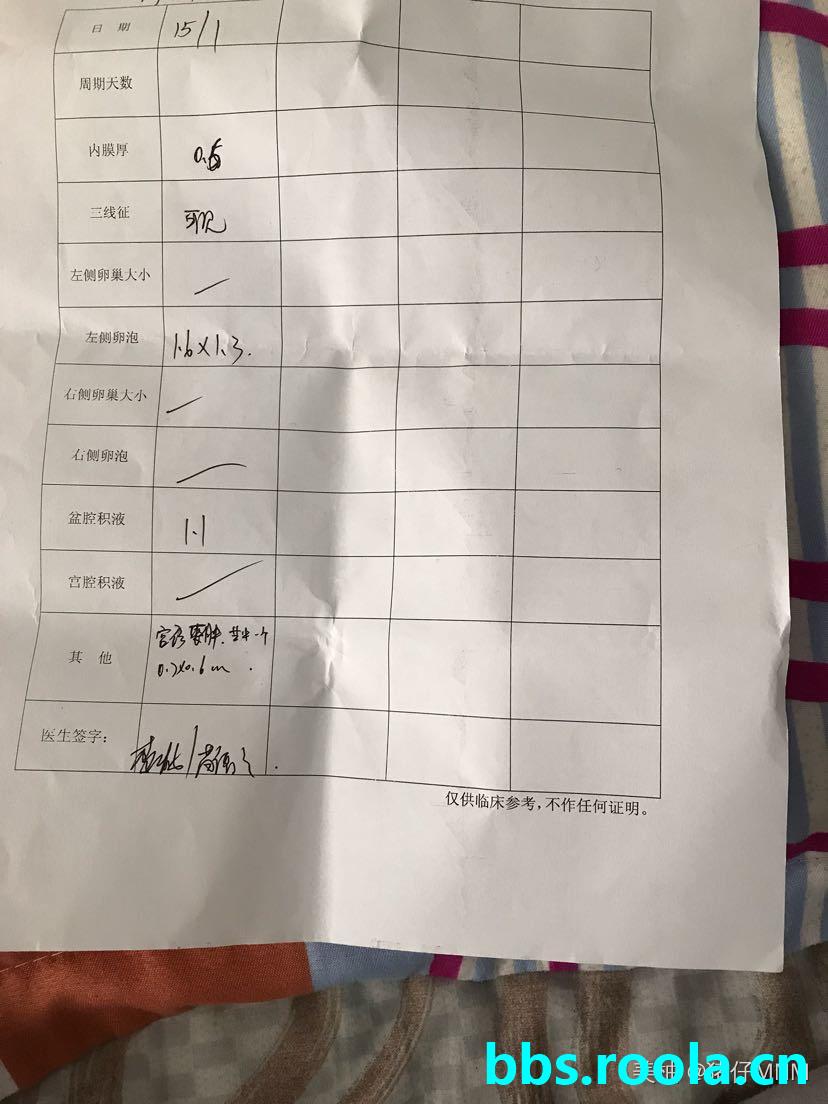 日 期 15/1
周期天数
内膜厚
三线征 可见
左侧卵巢大小
左侧卵泡 1.6×1.3.
右侧卵巢大小
右侧卵泡
盆腔积液 1.1
宫腔积液
其 他 一个
医生签字:
仅供临床参考,不作任何证明。
bbs.roola.cn